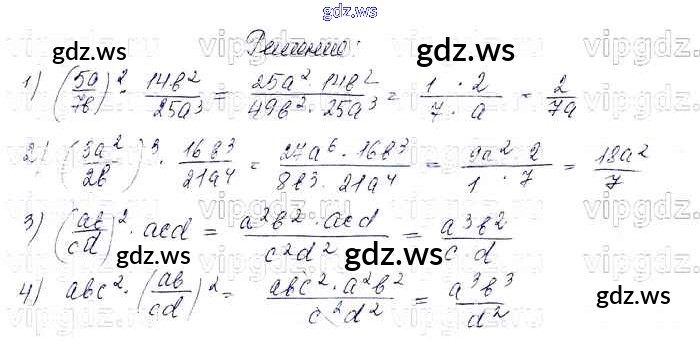 gdz.ws
Решение:
gdz.ws gdz.ws
1) (5a/7в)² · 14в²/25a³ = 25a² · 14в²/49в² · 25a³ = 1 · 2/7 · a = 2/7a
2) (3a²/2в)³ · 16в³/21a⁴ = 27a⁶ · 16в³/8в³ · 21a⁴ = 9a² · 2/1 · 7 = 18a²/7
3) (aв/cd)² · acd = a²в² · acd/c²d² = a³в²/c · d
gdz.ws gdz.ws
4) aвc² · (aв/cd)² = aвc² · a²в²/c²d² = a³в³/d²
vipgdz.ws
gdz.ws